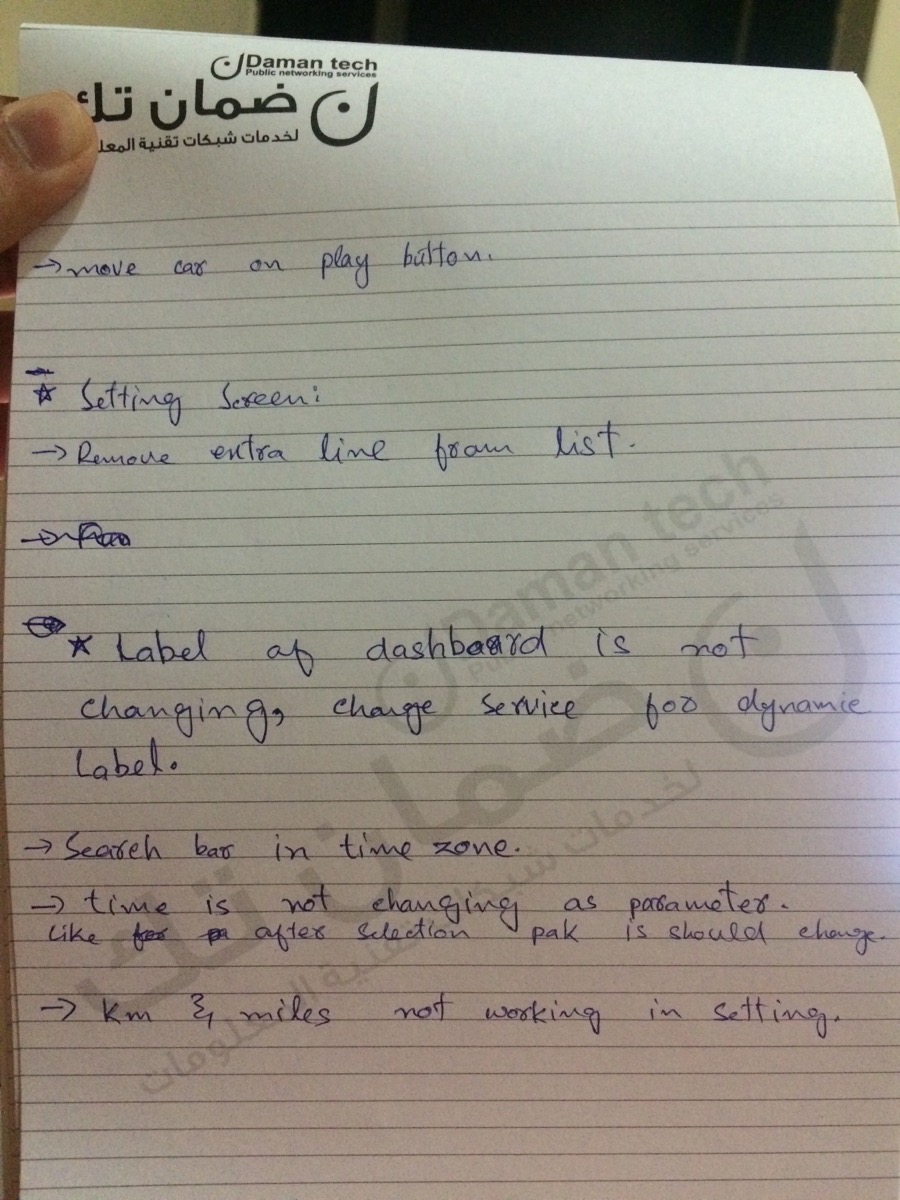 Daman tech
Public networking services
ضمان تك
لخدمات شبكات تقنية المعل
→ move car on play button.
☆ Setting Screen:
→ Remove extra line from list.
★ Label of dashboard is not
changing, change service for dynamic
Label.
→ Search bar in time zone.
→ time is not changing as parameter.
like after selection pak is should change.
→ Km & miles not working in setting.
Daman tech
Public networking services
ضمان تك
لخدمات شبكات تقنية المعلومات